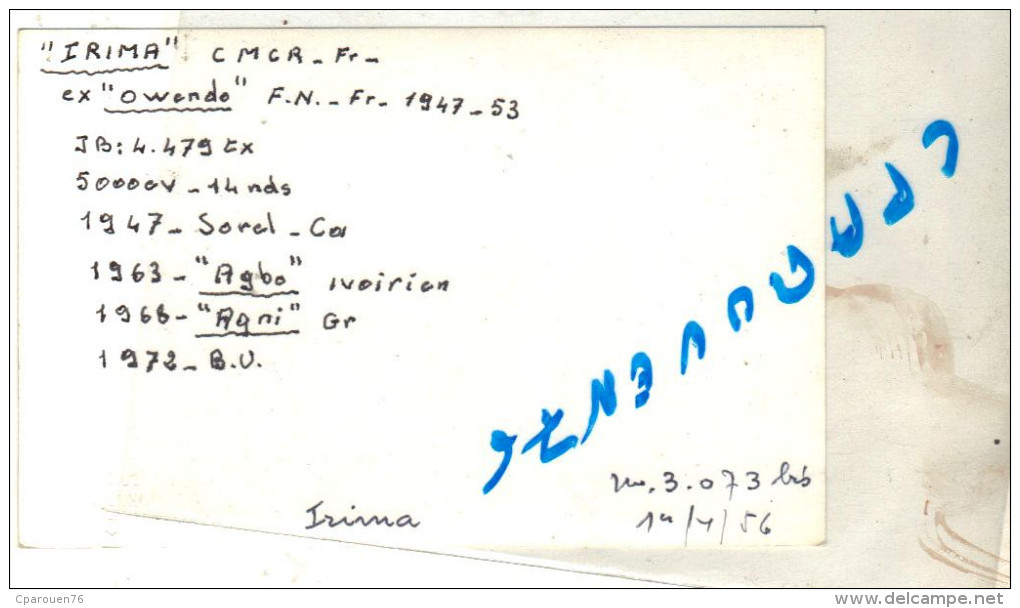 "IRIMA" CMCR - Fr -
ex "Owendo" F.N. - Fr - 1947 - 53
JB: 4.479 tx
50000v - 14 nds
1947 - Sorel - Ca
1963 - "Agbo" ivoirien
1968 - "Agni" Gr
1972 - B.V.
3.073
Irima
56
Cparouen76
www.delcampe.net